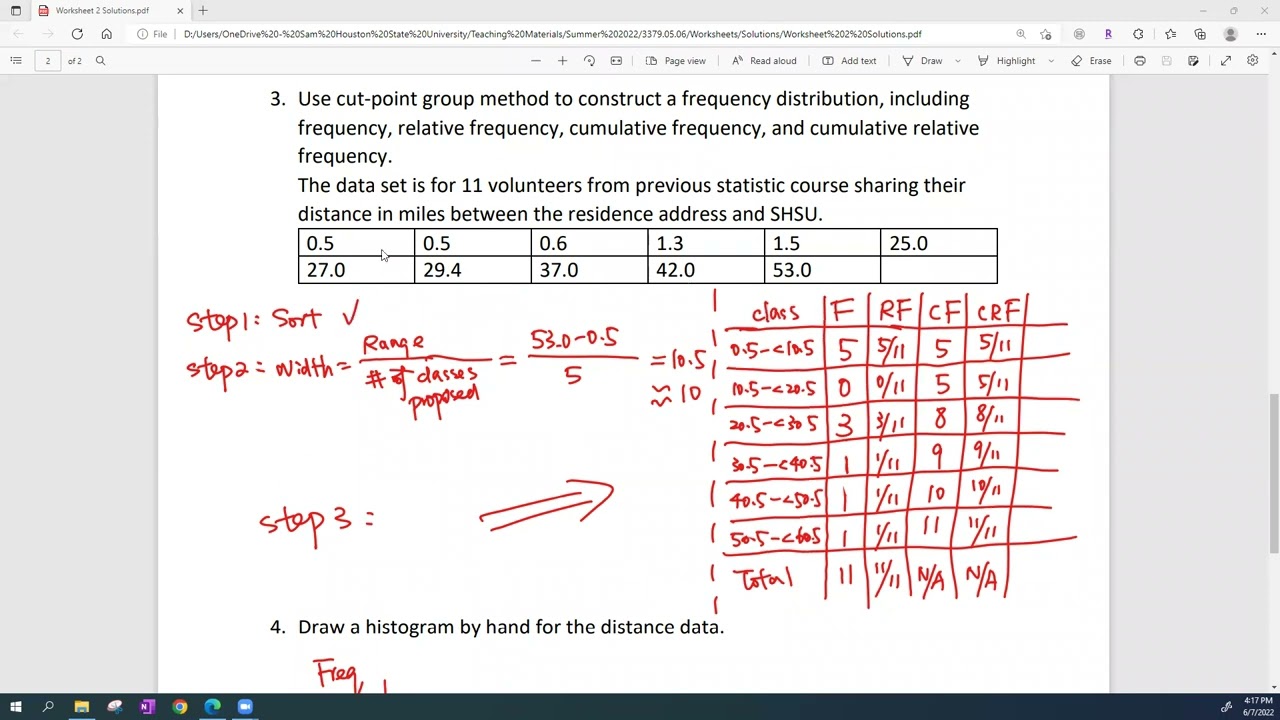 Worksheet 2 Solutions.pdf
File
D:/Users/OneDrive%20-%20Sam%20Houston%20State%20University/Teaching%20Materials/Summer%202022/3379.05.06/Worksheets/Solutions/Worksheet%202%20Solutions.pdf
2 of 2 Page view Read aloud Add text Draw Highlight Erase
3. Use cut-point group method to construct a frequency distribution, including
frequency, relative frequency, cumulative frequency, and cumulative relative
frequency.
The data set is for 11 volunteers from previous statistic course sharing their
distance in miles between the residence address and SHSU.
0.5 0.5 0.6 1.3 1.5 25.0
27.0 29.4 37.0 42.0 53.0
step1: Sort ✓
step2: Width = Range / # of classes proposed = 53.0-0.5 / 5 = 10.5 ≈ 10
step 3:
class F RF CF CRF
0.5-<10.5 5 5/11 5 5/11
10.5-<20.5 0 0/11 5 5/11
20.5-<30.5 3 3/11 8 8/11
30.5-<40.5 1 1/11 9 9/11
40.5-<50.5 1 1/11 10 10/11
50.5-<60.5 1 1/11 11 11/11
Total 11 11/11 N/A N/A
4. Draw a histogram by hand for the distance data.
Freq
4:17 PM
6/7/2022